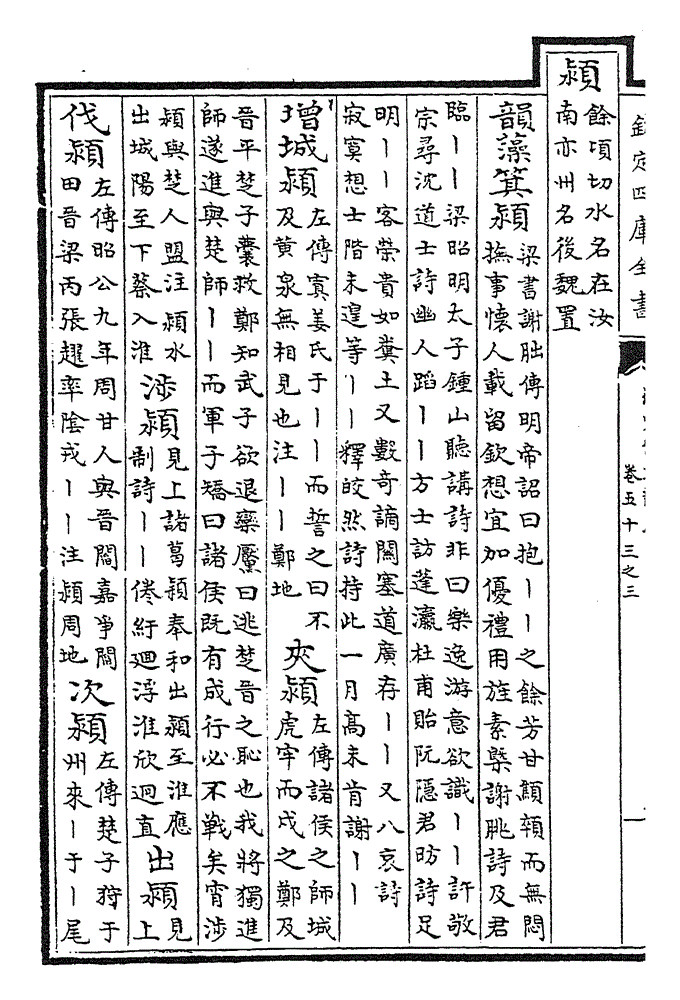 欽定四庫全書
卷五十三之三
潁
餘頃切水名在汝
南亦州名後魏置
韻藻箕潁
梁書謝朏傳明帝詔曰抱丨丨之餘芳甘顦顇而無悶
撫事懷人載留欽想宜加優禮用旌素槩謝朓詩及君
臨丨丨梁昭明太子鍾山聽講詩非曰樂逸游意欲識丨丨許敬
宗尋沈道士詩幽人蹈丨丨方士訪蓬瀛杜甫貽阮隱君昉詩足
明丨丨客榮貴如糞土又數奇謫關塞道廣存丨丨又八哀詩
寂寞想士階未遑等丨丨釋皎然詩持此一月高未肯謝丨丨
增城潁
左傳寘姜氏于丨丨而誓之曰不
及黃泉無相見也注丨丨鄭地
夾潁
左傳諸侯之師城
虎牢而戍之鄭及
晉平楚子囊救鄭知武子欲退欒黶曰逃楚晉之恥也我將獨進
師遂進與楚師丨丨而軍子矯曰諸侯既有成行必不戰矣宵涉
潁與楚人盟注潁水
出城陽至下蔡入淮
涉潁
見上諸葛潁奉和出潁至淮應
制詩丨丨倦紆迴浮淮欣迥直
出潁
見
上
伐潁
左傳昭公九年周甘人與晉閻嘉爭閻
田晉梁丙張趯率陰戎丨丨注潁周地
次潁
左傳楚子狩于
州來丨于丨尾